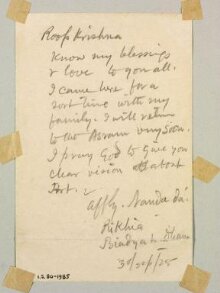 Roop Krishna
Know my blessings
& love to you all.
I came here for a
short time with my
family. I will return
to the Asram very soon.
I pray God to give you
clear vision about
Art.
affly. Nanda da.
Rikhia
30/sep/28
I.S. 80-1985